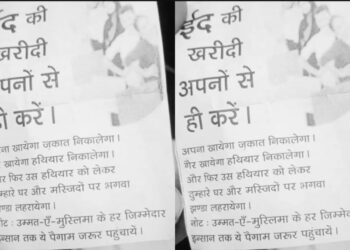 ईद की
खरीदी
अपनों से
ही करें।
अपना खायेगा जकात निकालेगा।
गैर खायेगा हथियार निकालेगा।
और फिर उस हथियार को लेकर
तुम्हारे पर और मस्जिदों पर भगवा
झण्डा लहरायेगा।
नोट : उम्मत-एँ-मुस्लिमा के हर जिम्मेदार
इन्सान तक ये पैगाम जरूर पहुंचाये।
ईद की
खरीदी
अपनों से
ही करें।
अपना खायेगा जकात निकालेगा।
गैर खायेगा हथियार निकालेगा।
और फिर उस हथियार को लेकर
तुम्हारे पर और मस्जिदों पर भगवा
झण्डा लहरायेगा।
नोट : उम्मत-एँ-मुस्लिमा के हर जिम्मेदार
इन्सान तक ये पैगाम जरूर पहुंचाये।